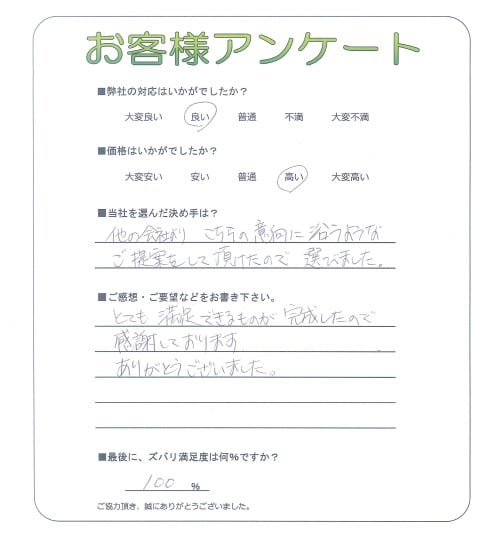 お客様アンケート
■弊社の対応はいかがでしたか？
大変良い 良い 普通 不満 大変不満
■価格はいかがでしたか？
大変安い 安い 普通 高い 大変高い
■当社を選んだ決め手は？
他の会社より、こちらの意向に沿うような
ご提案をして頂けたので選びました。
■ご感想・ご要望などをお書き下さい。
とても満足できるものが完成したので
感謝しております。
ありがとうございました。
■最後に、ズバリ満足度は何%ですか？
100 %
ご協力頂き、誠にありがとうございました。